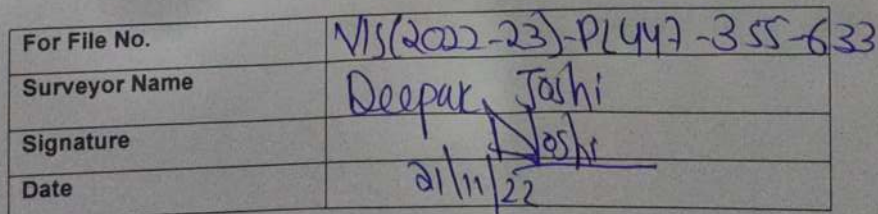 For File No. VIS(2022-23)-PL447-355-633
Surveyor Name Deepak Joshi
Signature Joshi
Date 21/11/22